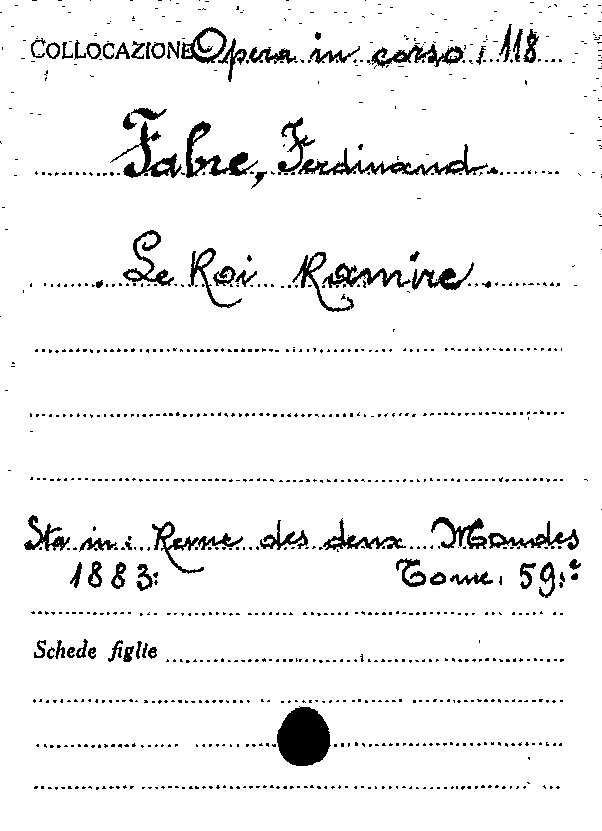 COLLOCAZIONE Opera in corso, 118
Fabre, Ferdinand.
. Le Roi Ramire.
Sta in: Revue des deux Mondes
1883: Tome. 59.º
Schede figlie